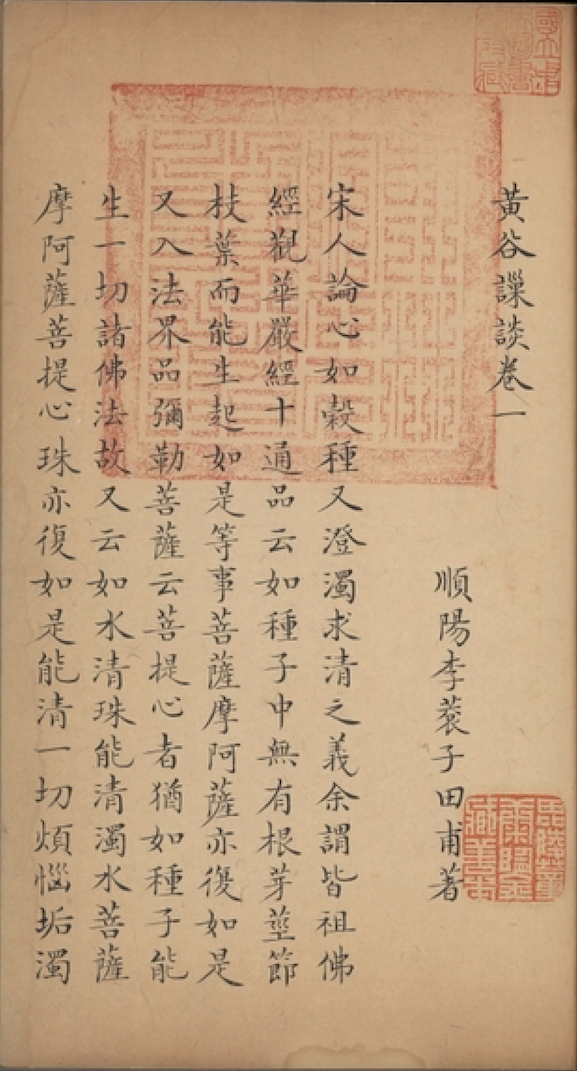 黃谷譧談卷一
順陽李蓘子田甫著
宋人論心如穀種又澄濁求清之義余謂皆祖佛
經觀華嚴經十通品云如種子中無有根芽莖節
枝葉而能生起如是等事菩薩摩阿薩亦復如是
又入法界品彌勒菩薩云菩提心者猶如種子能
生一切諸佛法故又云如水清珠能清濁水菩薩
摩阿薩菩提心珠亦復如是能清一切煩惱垢濁